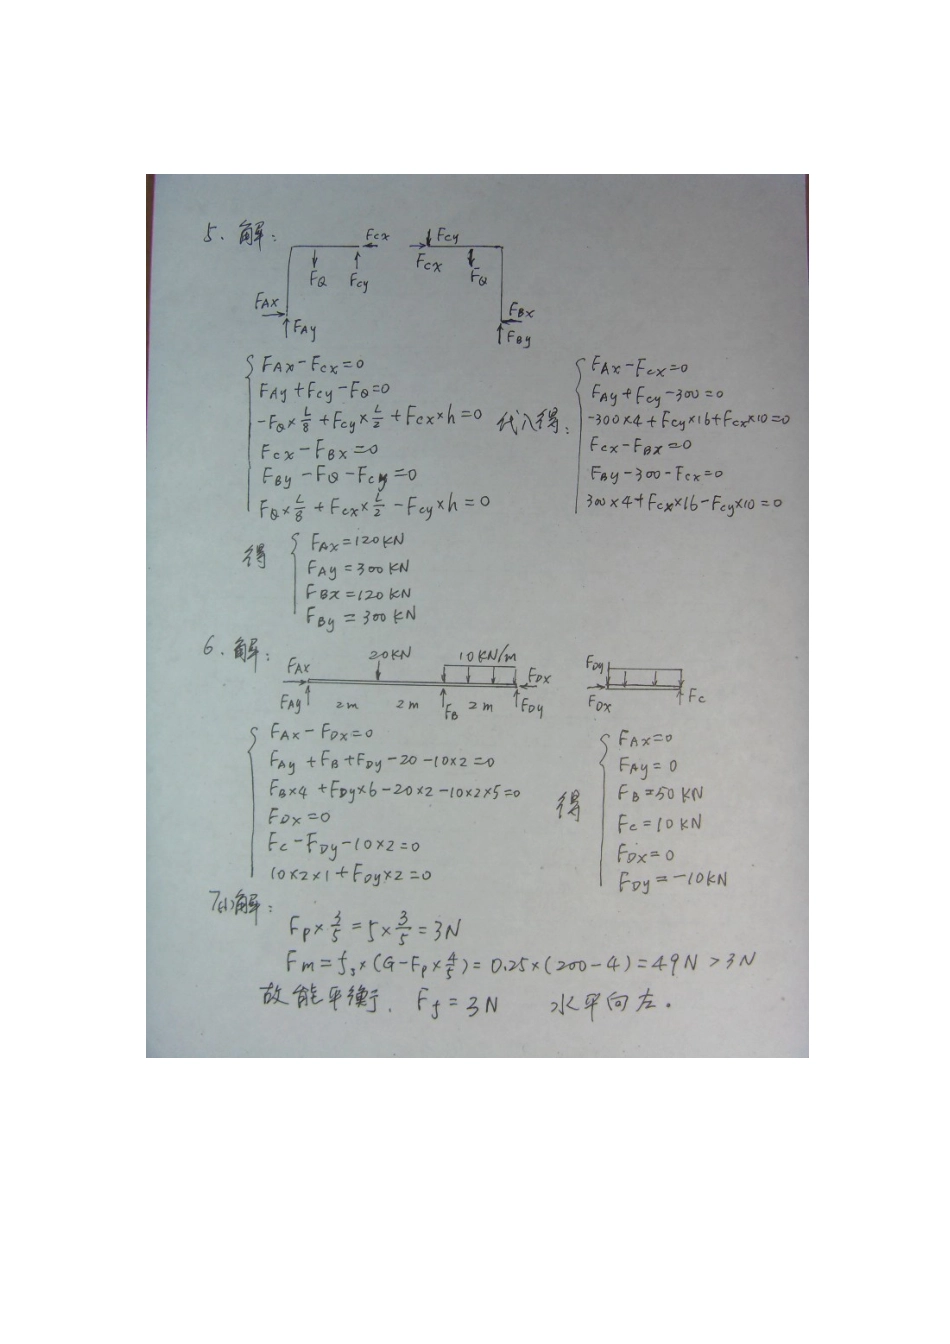 5、解：
Fcx Fcy
FQ Fcy Fcx FQ
FAX FBX
FAy FBy
FAx-Fcx=0
FAy+Fcy-FQ=0
-FQ×L/8+Fcy×L/2+Fcx×h=0
Fcx-FBx=0
FBy-FQ-Fcy=0
FQ×L/8+Fcx×L/2-Fcy×h=0
代入得：
FAx-Fcx=0
FAy+Fcy-300=0
-300×4+Fcy×16+Fcx×10=0
Fcx-FBx=0
FBy-300-Fcx=0
300×4+Fcx×16-Fcy×10=0
得
FAx=120KN
FAy=300KN
FBx=120KN
FBy=300KN
6、解：
FAX 20KN 10KN/m FDX FDy
FAy 2m 2m FB 2m FDy FDX Fc
FAx-FDx=0
FAy+FB+FDy-20-10×2=0
FB×4+FDy×6-20×2-10×2×5=0
FDx=0
Fc-FDy-10×2=0
10×2×1+FDy×2=0
得
FAx=0
FAy=0
FB=50KN
Fc=10KN
FDx=0
FDy=-10KN
7(1)解：
Fp×3/5=5×3/5=3N
Fm=fs×(G-Fp×4/5)=0.25×(200-4)=49N>3N
故能平衡、Ff=3N 水平向左.